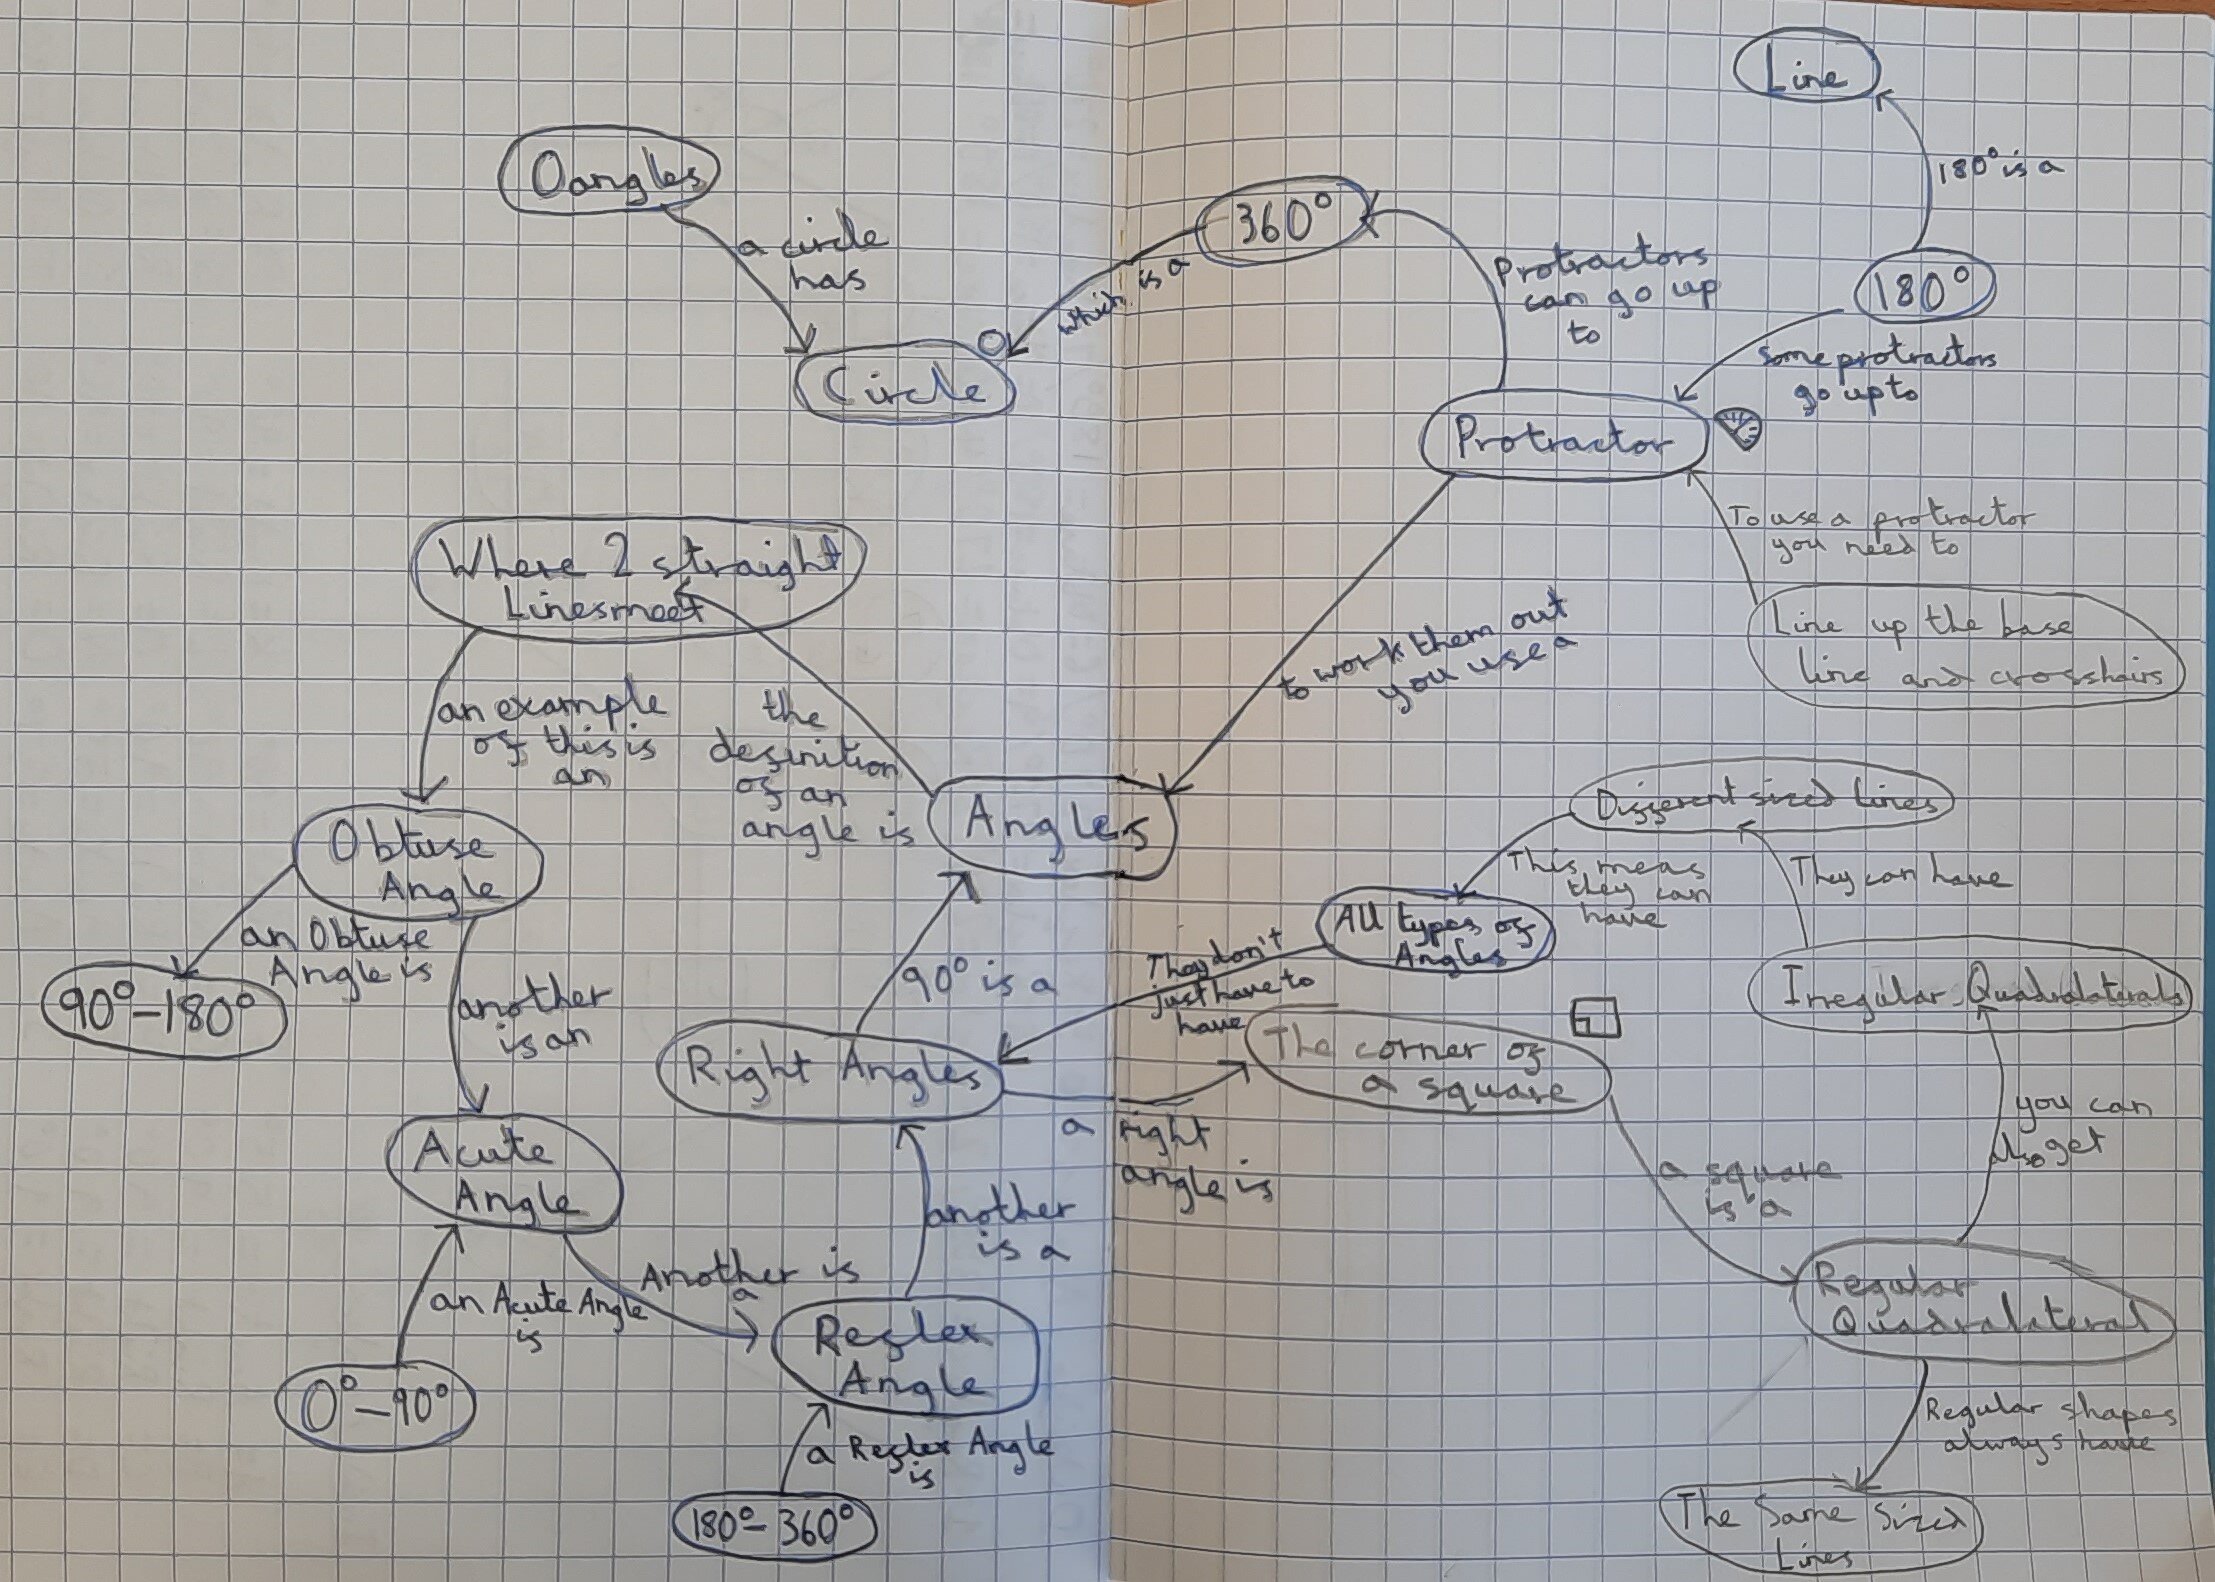 Line
180° is a
0 angles
a circle
has
360°
which is a
Protractors
can go up
to
180°
some protractors
go up to
Circle
Protractor
To use a protractor
you need to
Line up the base
line and crosshairs
Where 2 straight
Lines meet
to work them out
you use a
an example
of this is
an
the
definition
of an
angle is
Angles
Different sized lines
This meas
they can
have
They can have
Obtuse
Angle
All types of
Angles
They don't
just have to
have
Irregular Quadralaterals
an Obtuse
Angle is
90°-180°
another
is an
90° is a
Right Angles
The corner of
a square
a right
angle is
you can
also get
a square
is a
Acute
Angle
another
is a
Another is
a
an Acute Angle
is
Regular
Quadralateral
Reflex
Angle
0°-90°
a Reflex Angle
is
180°-360°
Regular shapes
always have
The Same Sized
Lines